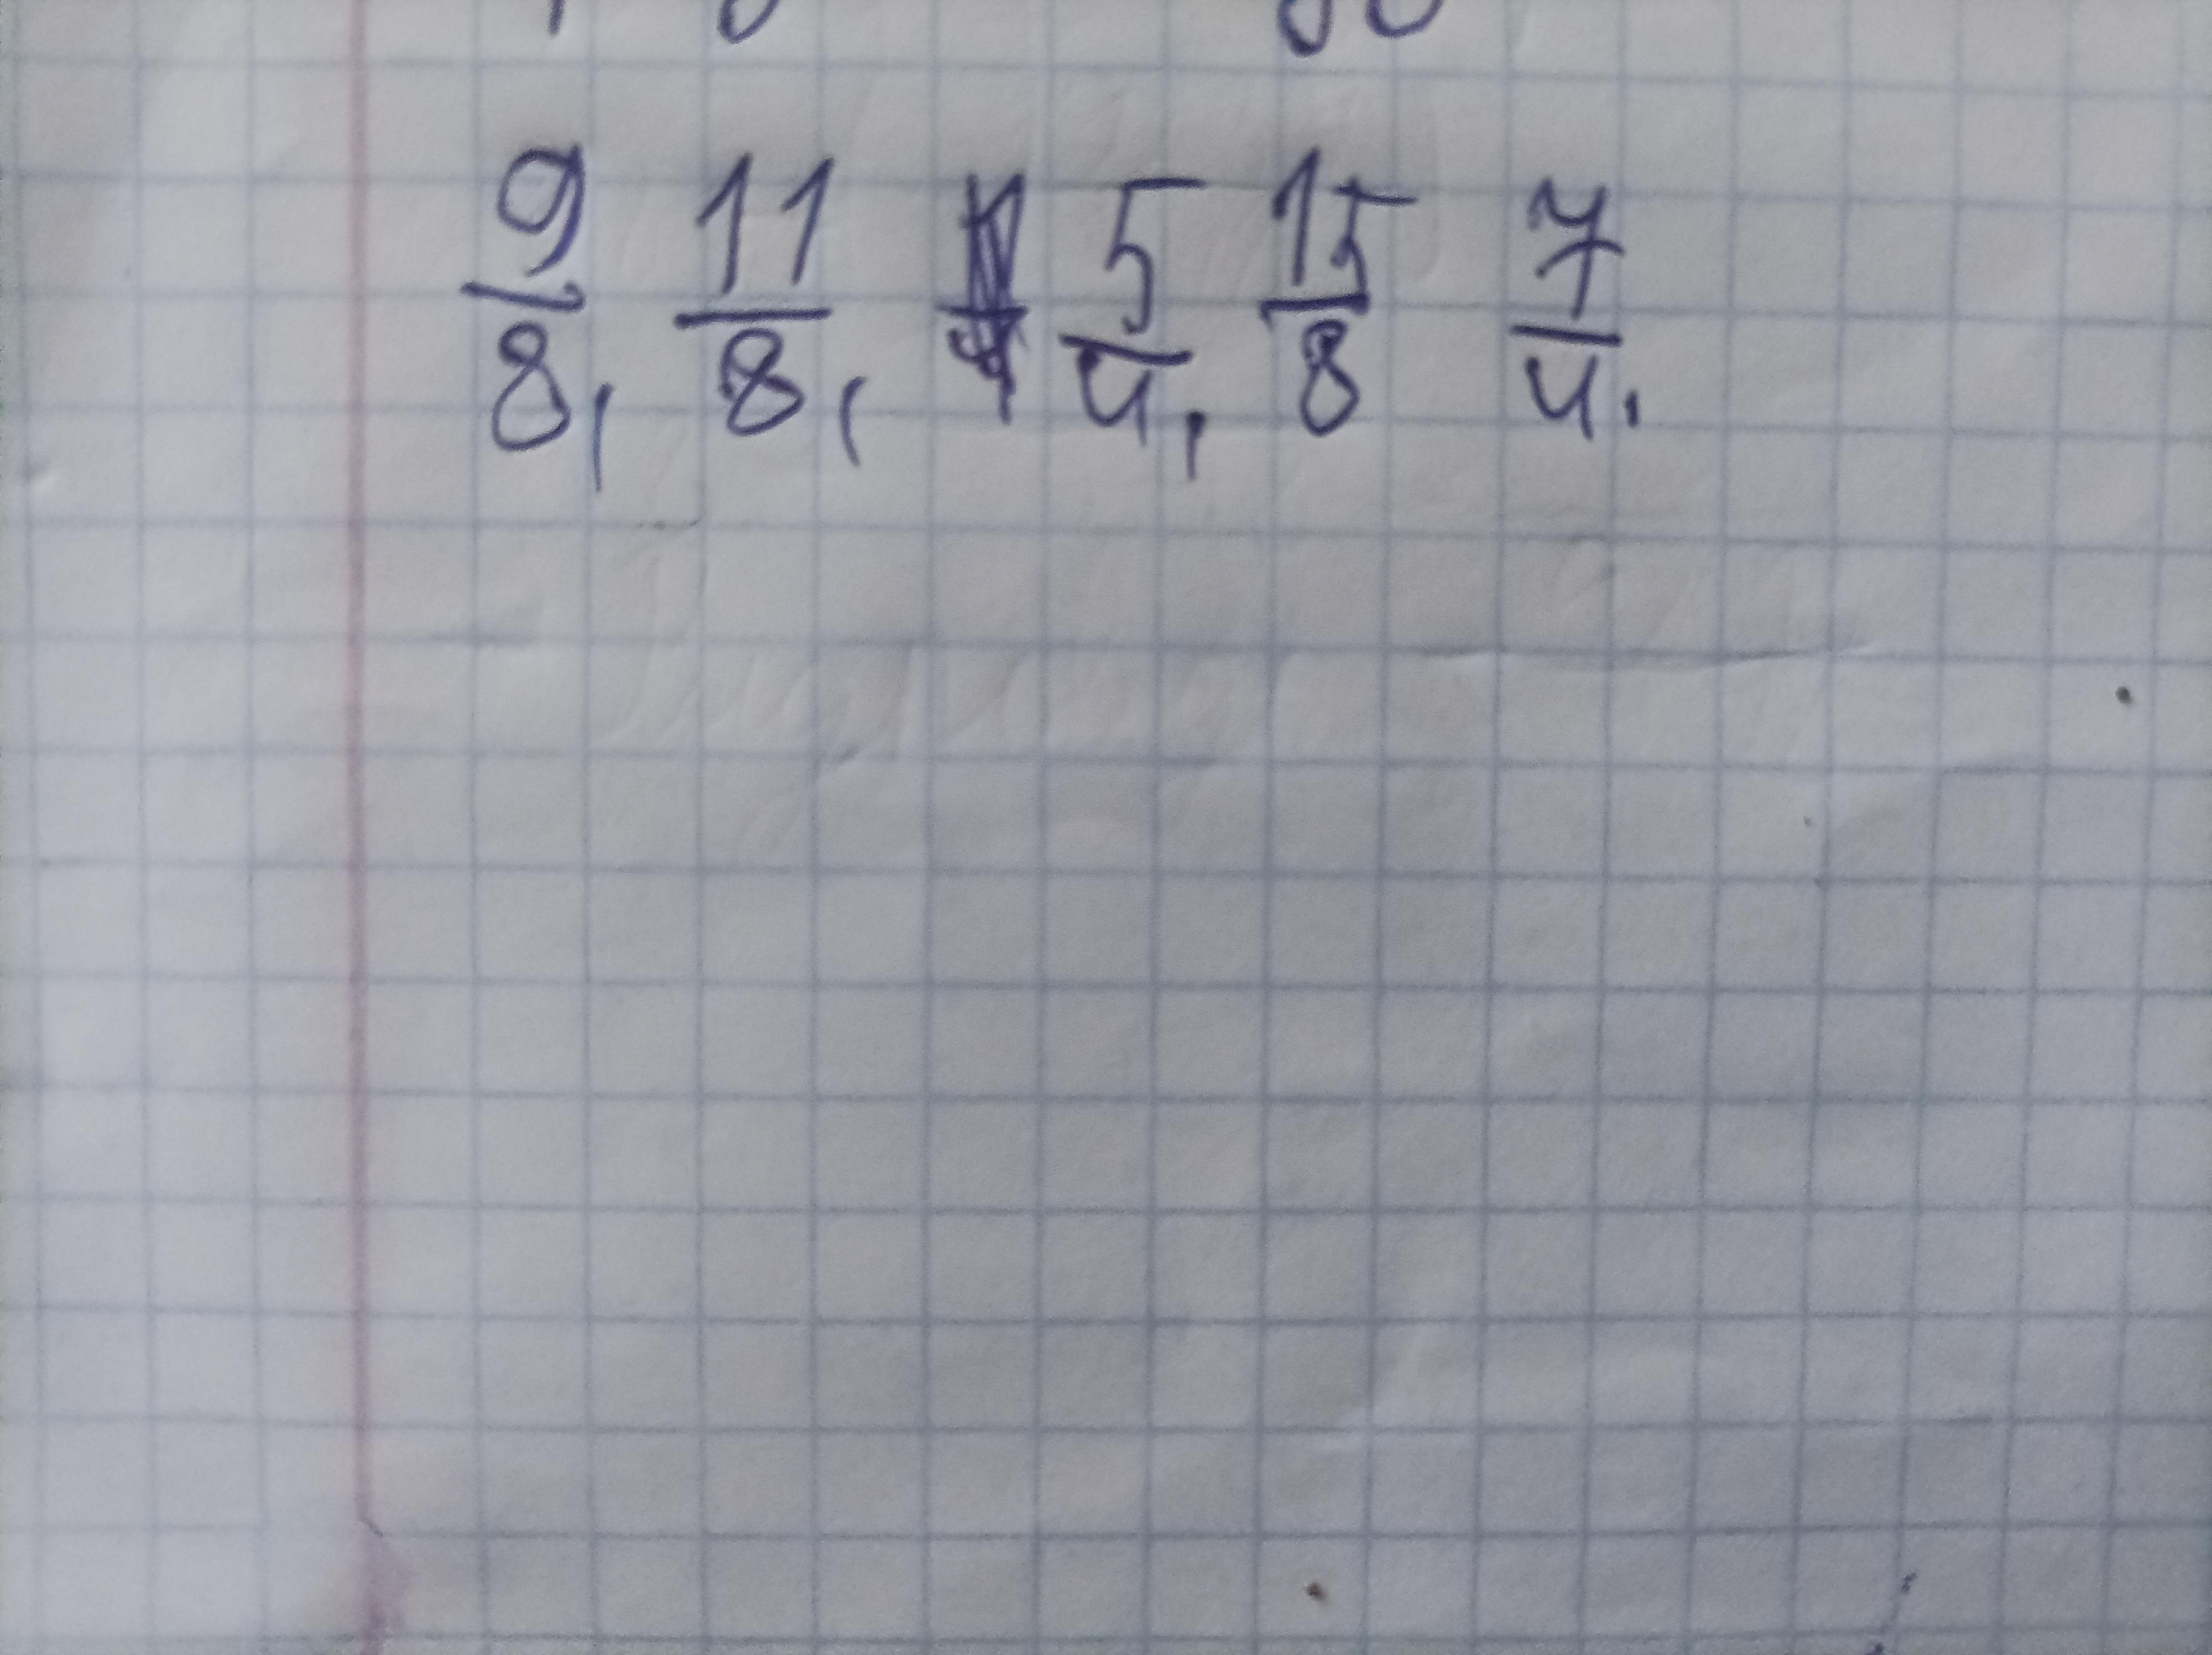 9/8, 11/8, 5/4, 15/8 7/4.